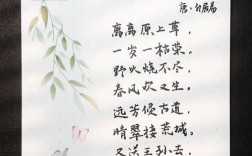 唐·白居易
离离原上草，
一岁一枯荣。
野火烧不尽，
春风吹又生。
远芳侵古道，
晴翠接荒城。
又送王孙去，